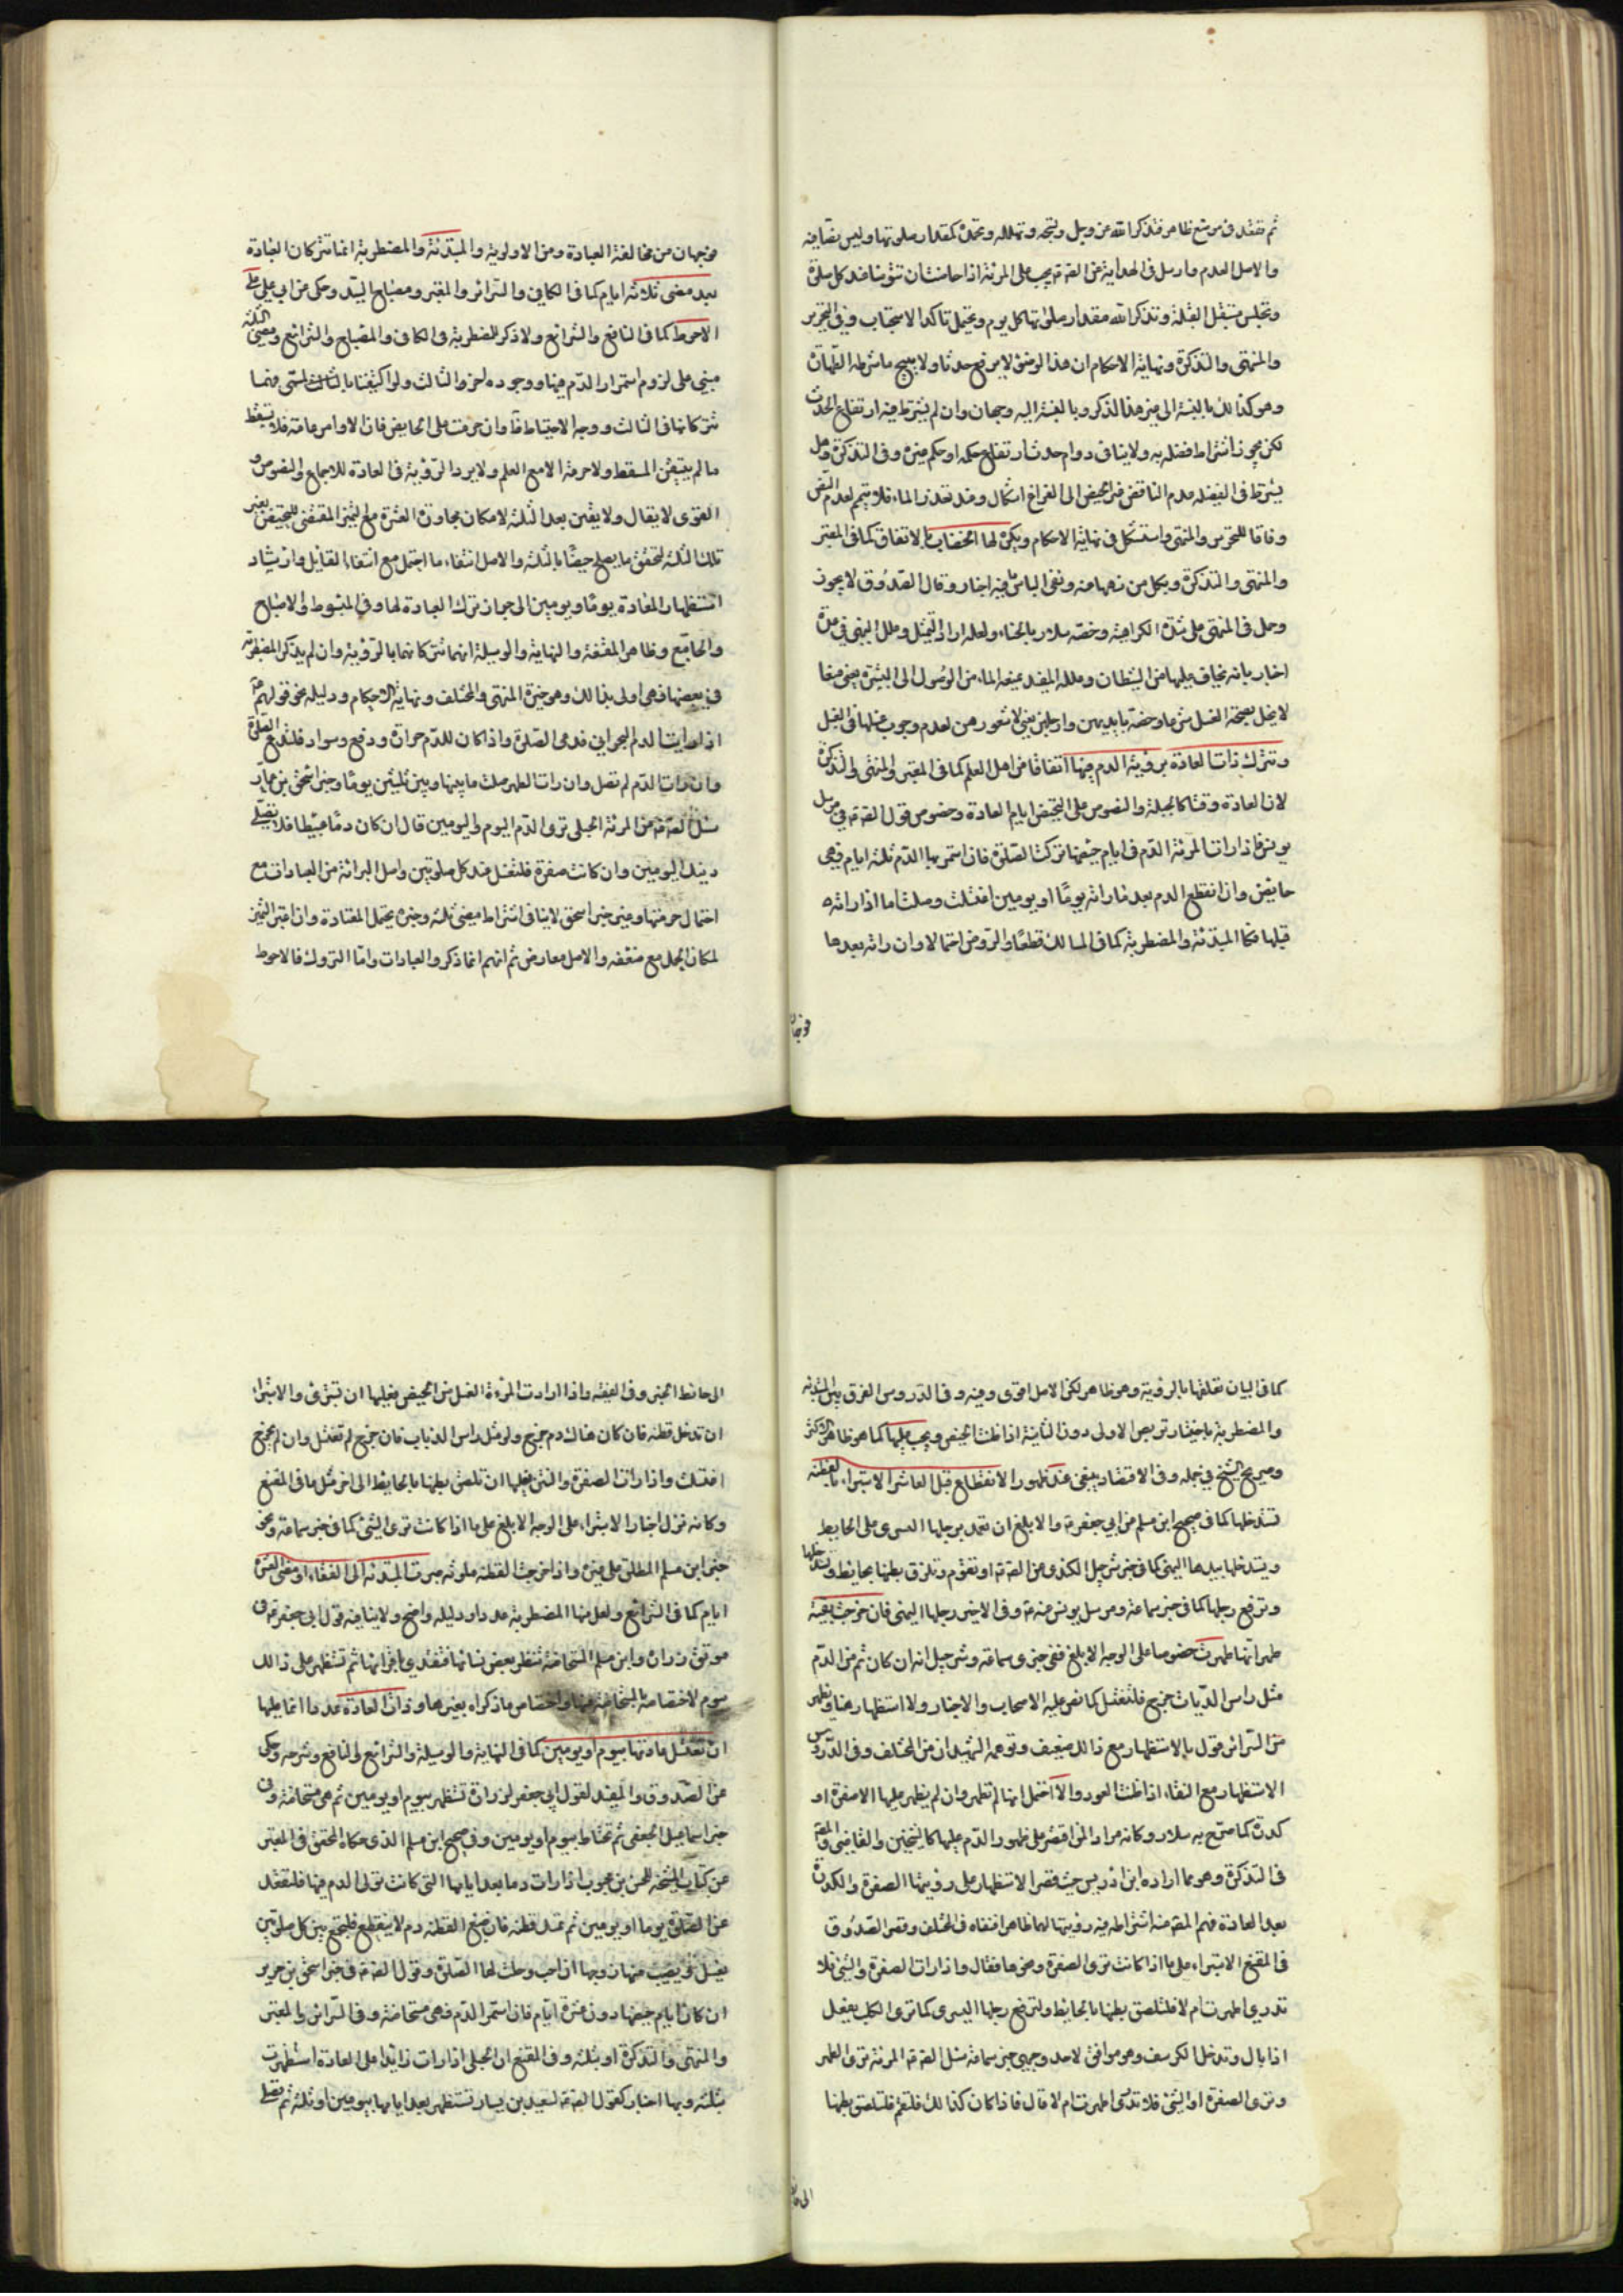 ثم تقعد في موضع طاهر فتذكر الله عز وجل وتسبحه وتهلله وتحمده كمقدار صلوتها وليس نصا فيه
والاصل العدم وارسل في الهداية عن الصادق يجب على المرئة اذا حاضت ان تتوضأ عند كل صلوة
وتجلس مستقبل القبلة وتذكر الله مقدار صلوتها كل يوم ويحتمل تاكد الاستحباب وفي التحرير
والمنتهى والتذكرة ونهاية الاحكام ان هذا الوضوء لا يرفع حدثا ولا يبيح ما شرطه الطهارة
وهو كذلك بالنسبة الى غير هذا الذكر وبالنسبة اليه وجهان وان لم يشترط فيه ارتفاع الحدث
لكن يجوز اشتراط فضله به ولا ينافي دوام حدث ارتفاع حكم او حكم غيره وفي التذكرة وهل
يشترط في الفضيلة عدم الناقض غير الحيض الى الفراغ اشكال وعند تعذر الماء فلا تيمم لعدم النص
وفاقا للتحرير والمنتهى واستشكل في نهاية الاحكام ويكره لها الخضاب بالاتفاق كما في المعتبر
والمنتهى والتذكرة وبكل من نهيها عنه ونفي الباس فيه اخبار وقال الصدوق لا يجوز
وحمل في المنتهى على شدة الكراهية وخصه سلار بالحناء ولعله اراد التمثيل وعلل النهي في عدة
اخبار بانه يخاف عليها من الشيطان وعلله المفيد بمنعه الماء من الوصول الى البشرة يعني منعا
لا يخل بصحة الغسل
وتترك ذات العادة برؤية الدم فيها اتفاقا من اهل العلم كما في المعتبر والمنتهى والتذكرة
لان العادة وقتا كالجبلة والنصوص على التحيض ايام العادة وخصوص قول الصادق في مرسل
يونس فاذا رات المرئة الدم في ايام حيضها تركت الصلوة فان استمر بها الدم ثلثة ايام فهي
حايض وان انقطع الدم بعد ما راته يوما او يومين اغتسلت وصلت اما اذا راته
قبلها فكالمبتدئة والمضطربة كما في المسالك قطعا والروض احتمالا وان راته بعدها
فوجهان
فوجهان من مخالفة العادة ومن الاولوية والمبتدئة والمضطربة انما تتركان العبادة
بعد مضي ثلاثة ايام كما في الكافي والسرائر والمعتبر ومصباح السيد وحكي عن ابي علي على
الاحوط كما في النافع والشرائع ولا ذكر للمضطربة في الكافي والمصباح والشرائع ومضي الثلثة
مبني على لزوم استمرار الدم فيها ووجوده لحز والثالث ولو اكتفينا بالثالث المسمى فهما
تتركانها في الثالث ووجه الاحتياط قا وان حرمت على الحايض فان الاوامر عامة فلا تسقط
ما لم يتيقن المسقط ولا حرمة الا مع العلم ولا يرد الرؤية في العادة للاجماع والنصوص و
القوى لا يقال ولا يقين بعد الثلثة لامكان مجاوزة العشرة مع التميز المقتضي للتحيض بغير
تلك الثلثة لتحقق ما يصلح حيضا بالثلثة والاصل انتفاء ما احتمل مع انتفاء القايل وارشاد
استظهار المعتادة يوما ويومين الى جواز ترك العبادة لها وفي المبسوط والاصباح
والجامع وظاهر المقنعة والنهاية والوسيلة انهما تتركانهما بالرؤية وان لم يذكر المضطربة
في بعضها فهي اولى بذلك وهو خيرة المنتهى والمختلف ونهاية الاحكام ودليله نحو قولهم
اذا رايت الدم البحراني فدعي الصلوة واذا كان للدم حرارة ودفع وسواد فلتدع الصلوة
وان رات الدم لم تصل وان رات الطهر صلت ما بينها وبين ثلثين يوما وخبر اسحق بن عمار
سئل الصادق عن المرئة الحبلى ترى الدم اليوم واليومين قال ان كان دما عبيطا فلا تصلي
ذينك اليومين وان كانت صفرة فلتغتسل عند كل صلوتين واصل البرائة من العبادات مع
احتمال حرمتها وغير خبر اسحق لا ينافي اشتراط مضي ثلثة وخبره يحتمل المعتادة وان اعتبر التميز
لمكان الحبل مع ضعفه والاصل معارض ثم انهم انما ذكروا العبادات واما التروك فالاحوط
كما في البيان تعلقها بالرؤية وهو ظاهر لكن الاصل اقوى وفيه وفي الدروس الفرق بين المبتدئة
والمضطربة باختيار تربص الاولى دون الثانية اذا ظنت الحيض ويجب عليها كما هو ظاهر الاكثر
وصريح الشيخ في جمله وفي الاقتصاد ينبغي عند ظهور الانقطاع قبل العاشر الاستبراء بالقطنة
تستدخلها كما في صحيح ابن مسلم عن ابي جعفر والابلغ ان تعمد برجلها اليسرى على الحايط
ويستدخلها بيدها اليمنى كما في خبر شرحبيل الكندي عن الصادق او تقوم وتلزق بطنها بحايط وتستدخلها
وترفع رجلها كما في خبر سماعة ومرسل يونس عنه وفي الاخير رجلها اليمنى فان خرجت نقية
طهر انها طهرت خصوصا على الوجه الابلغ ففي خبري سماعة وشرحبيل انه ان كان ثم من الدم
مثل راس الذباب خرج فلتغتسل كما نص عليه الاصحاب والاخبار ولا استظهار هنا وظهر
من السرائر قول بالاستظهار مع ذلك ضعيف وتوهمه الشهيدان من المختلف وفي الدروس
الاستظهار مع النقاء اذا ظنت العود والا احتمل انها لم تطهر وان لم يظهر عليها الا صفرة او
كدرة كما صرح به سلار وكانه مراد من اقتصر على ظهور الدم عليها كالشيخين والقاضي والمصنف
في التذكرة وهو ما اراده ابن ادريس حيث قصر الاستظهار على رؤيتها الصفرة والكدرة
بعد العادة فهم المصنف منه اشتراطه فيه رؤيتها لهما ظاهرا فنفاه في المختلف وقصر الصدوق
في المقنع الاستبراء على ما اذا كانت ترى الصفرة ونحوها فقال واذا رات الصفرة والشيء فلا
تدري اطهرت ام لا فلتلصق بطنها بالحايط ولترفع رجلها اليسرى كما ترى الكلب يفعل
اذا بال وتدخل الكرسف وهو موافق لاحد وجهي خبر سماعة سئل الصادق المرئة ترى الطهر
وترى الصفرة او الشيء فلا تدري اطهرت ام لا قال فاذا كان كذلك فلتقم فلتلصق بطنها
الى حايط
الى حائط الخبر وفي الفقيه واذا ارادت المرءة الغسل من الحيض فعليها ان تستبرئ والاستبراء
ان تدخل قطنة فان كان هناك دم خرج ولو مثل راس الذباب فان خرج لم تغتسل وان لم يخرج
اغتسلت واذا رات الصفرة والنتن فعليها ان تلصق بطنها بالحايط الى اخر مثل ما في المقنع
وكانه نزل اخبار الاستبراء على الوجه الابلغ على ما اذا كانت ترى الشيء كما في خبر سماعة ونحو
خبر ابن مسلم المطلق على غيره واذا خرجت القطنة ملوثة صبرت المبتدئة الى النقاء او مضي العشرة
ايام كما في الشرائع ولعل منها المضطربة عددا ودليله واضح ولا ينافيه قول ابي جعفر في
موثق زرارة وابن مسلم المستحاضة تنظر بعض نسائها فتقتدي باقرائها ثم تستظهر على ذلك
بيوم لاختصاصه بالمستحاضة واختصاص ما ذكراه بغيرها وذات العادة عددا انما عليها
ان تغتسل عادتها بيوم او يومين كما في النهاية والوسيلة والشرائع والنافع وشرحه وحكي
عن الصدوق والمفيد لقول ابي جعفر لزرارة تستظهر بيوم او يومين ثم هي مستحاضة وفي
خبر اسماعيل الجعفي ثم تحتاط بيوم او يومين وفي صحيح ابن مسلم الذي حكاه المحقق في المعتبر
عن كتاب المشيخة للحسن بن محبوب اذا رات دما بعد ايامها التي كانت ترى الدم فيها فلتقعد
عن الصلوة يوما او يومين ثم تمسك قطنة فان صبغ القطنة دم لا ينقطع فلتجمع بين كل صلوتين
بغسل ويصيب منها زوجها ان احب وحلت لها الصلوة وقول الصادق في خبر اسحق بن جرير
ان كان ايام حيضها دون عشرة ايام فان استمر الدم فهي مستحاضة وفي السرائر والمعتبر
والمنتهى والتذكرة او بثلثة وفي المقنع ان الحبلى اذا رات زايدا على العادة استظهرت
بثلثة وبها اخبار كقول الصادق لسعيد بن يسار تستظهر بعد ايامها بيومين او ثلثة ثم تصلي